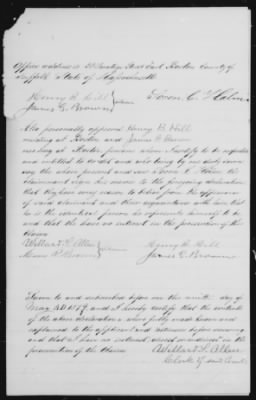 Office address is Saratoga Street East Boston County of
Suffolk State of Massachusetts
Henry B. Hill
James G. Brown
Also personally appeared Henry B. Hill
residing at Boston and James G. Brown
residing at Boston persons whom I certify to be respectable
and entitled to credit and who being by me duly sworn
say they were present and saw
the claimant sign his name to the foregoing declaration
that they have every reason to believe from the appearance
of said claimant and their acquaintance with him that
he is the identical person he represents himself to be
and that they have no interest in the prosecution of this
claim
Henry B. Hill
James G. Brown
Sworn to and subscribed before me this ninth day of
May and I hereby certify that the contents
of the above declaration were fully made known and
explained to the applicant and witnesses before swearing
and that I have no interest direct or indirect in the
prosecution of this claim
Clerk of said Court